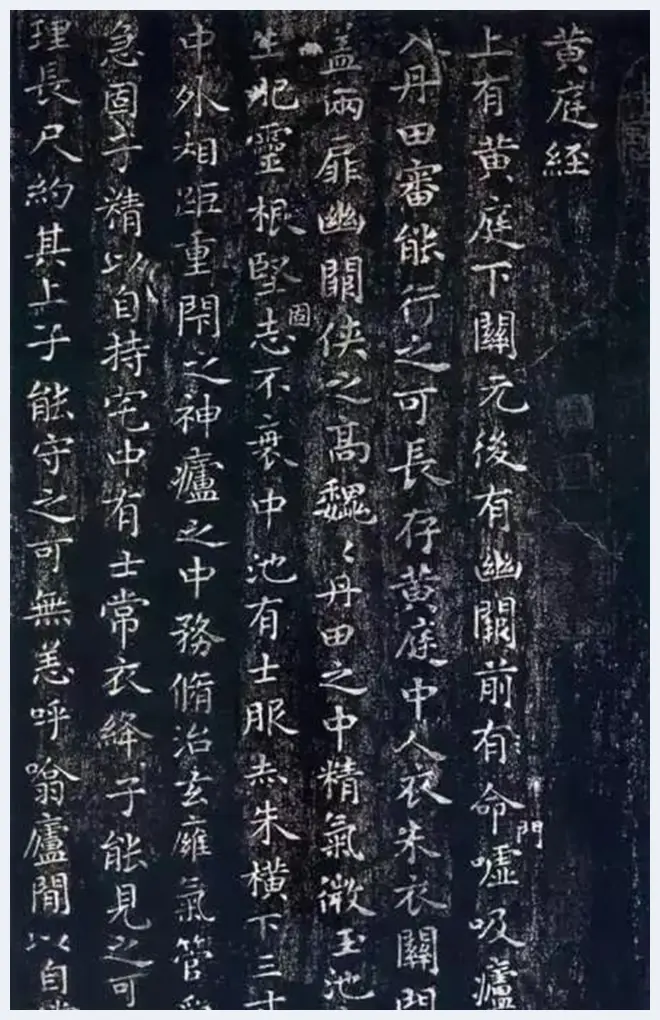 黄庭經
上有黄庭下關元後有幽闕前有命門嘘吸廬
入丹田審能行之可長存黄庭中人衣朱衣關門
盖兩扉幽闕俠之髙巍〻丹田之中精氣微玉池
生肥靈根堅固志不衰中池有士服赤朱横下三寸
中外相距重閇之神廬之中務脩治玄癰氣管
急固子精以自持宅中有士常衣絳子能見之可
理長尺約其上子能守之可無恙呼噏廬閒以自